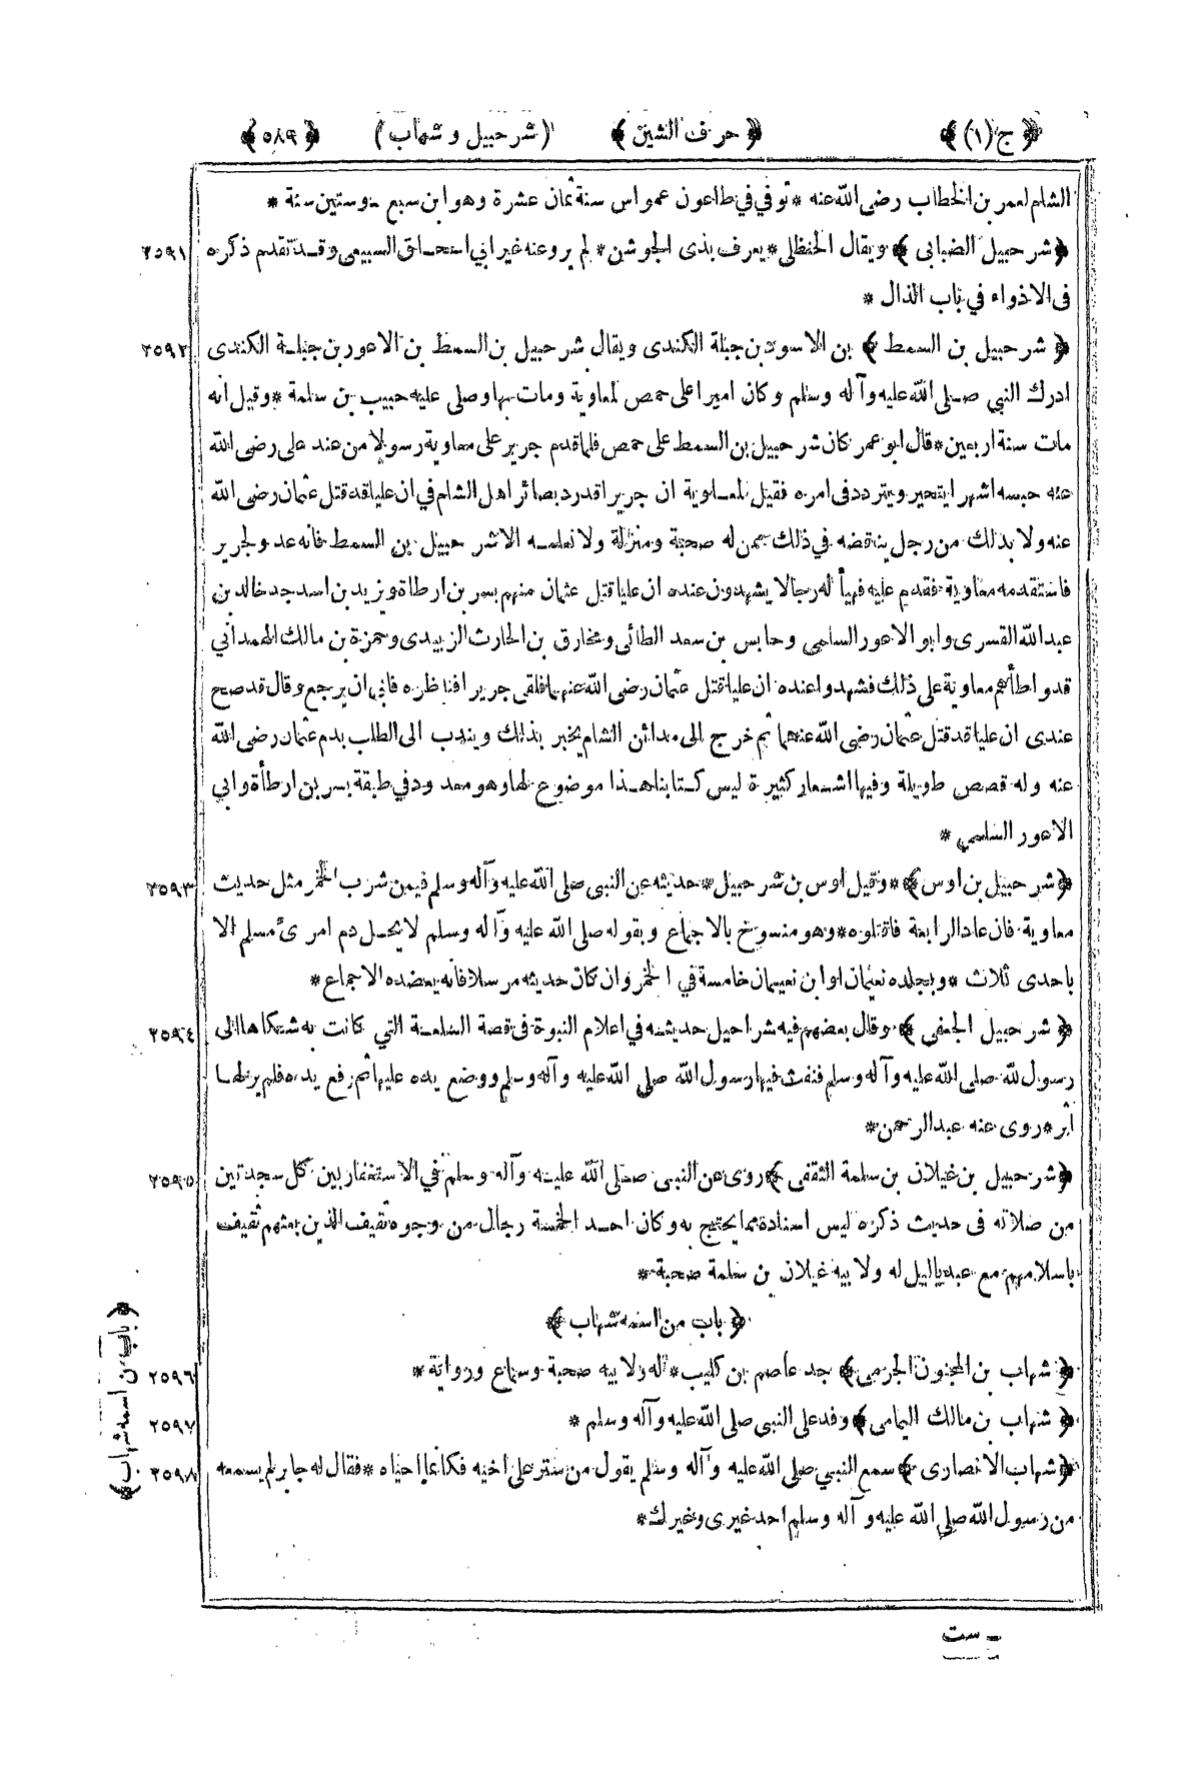 ﴿ ج (١) ﴾ ﴿ حرف الشين ﴾ (شرحبيل و شهاب) ﴿ ٥٨٩ ﴾
الشام لعمر بن الخطاب رضى الله عنه * توفي في طاعون عمواس سنة ثمان عشرة وهو ابن سبع وستين سنة *
﴿ شرحبيل الضبابى ﴾ ويقال الحنظلى * يعرف بذى الجوشن * لم يروعنه غير ابي اسحاق السبيعى وقد تقدم ذكره ٢٥٩١
فى الاذواء في باب الذال *
﴿ شرحبيل بن السمط ﴾ بن الاسود بن جبلة الكندى ويقال شرحبيل بن السمط بن الاعور بن جبلة الكندى ٢٥٩٢
ادرك النبي صلى الله عليه وآله وسلم وكان اميرا على حمص لمعاوية ومات بها وصلى عليه حبيب بن سلمة * وقيل انه
مات سنة اربعين * قال ابو عمر كان شرحبيل بن السمط على حمص فلما قدم جرير على معاوية رسولا من عند على رضى الله
عنه حبسه اشهرا يتحير ويتردد فى امره فقيل لمعاوية ان جريرا قد رد بصائر اهل الشام في ان عليا قد قتل عثمان رضى الله
عنه ولا بد لك من رجل يناقضه في ذلك ممن له صحبة ومنزلة ولا نعلمه الا شرحبيل بن السمط فانه عدو لجرير
فاستقدمه معاوية فقدم عليه فهيأ له رجالا يشهدون عنده ان عليا قتل عثمان منهم بسر بن ارطاة ويزيد بن اسد جد خالد بن
عبدالله القسرى وابو الاعور السلمى وحابس بن سعد الطائى ومخارق بن الحارث الزبيدى وحمزة بن مالك الهمدانى
قد واطأهم معاوية على ذلك فشهدوا عنده ان عليا قتل عثمان رضى الله عنهما فلقى جريرا فناظره فابى ان يرجع وقال قد صح
عندى ان عليا قد قتل عثمان رضى الله عنهما ثم خرج الى مدائن الشام يخبر بذلك ويندب الى الطلب بدم عثمان رضى الله
عنه وله قصص طويلة وفيها اشعار كثيرة ليس كتابنا هذا موضوع لها وهو معدود في طبقة بسر بن ارطأة وابي
الاعور السلمي *
﴿ شرحبيل بن اوس ﴾ * وقيل اوس بن شرحبيل * حديثه عن النبى صلى الله عليه وآله وسلم فيمن شرب الخمر مثل حديث ٢٥٩٣
معاوية فان عاد الرابعة فاقتلوه * وهو منسوخ بالاجماع وبقوله صلى الله عليه وآله وسلم لا يحل دم امرئ مسلم الا
باحدى ثلاث * وبجلده نعيمان او ابن نعيمان خامسة في الخمر وان كان حديثه مرسلا فانه يعضده الاجماع *
﴿ شرحبيل الجعفى ﴾ وقال بعضهم فيه شراحيل حديثه في اعلام النبوة فى قصة السلعة التي كانت به شتكاها الى ٢٥٩٤
رسول لله صلى الله عليه وآله وسلم فنفث فيها رسول الله صلى الله عليه وآله وسلم ووضع يده عليها ثم رفع يده فلم ير لها
اثر * روى عنه عبدالرحمن *
﴿ شرحبيل بن غيلان بن سلمة الثقفى ﴾ روى عن النبى صلى الله عليه وآله وسلم في الاستغفار بين كل سجدتين ٢٥٩٥
من صلاته فى حديث ذكره ليس اسناده مما يحتج به وكان احد الخمسة رجال من وجوه ثقيف الذين بعثهم ثقيف
باسلامهم مع عبد ياليل له ولابيه غيلان بن سلمة صحبة *
﴿ باب من اسمه شهاب ﴾
﴿ باب من اسمه شهاب ﴾
﴿ شهاب بن المجنون الجرمى ﴾ جد عاصم بن كليب * له ولابيه صحبة وسماع ورواية * ٢٥٩٦
﴿ شهاب بن مالك اليمامى ﴾ وفد على النبى صلى الله عليه وآله وسلم * ٢٥٩٧
﴿ شهاب الانصارى ﴾ سمع النبي صلى الله عليه وآله وسلم يقول من ستر على اخيه فكانما احياه * فقال له جابر لم يسمعه ٢٥٩٨
من رسول الله صلى الله عليه وآله وسلم احد غيرى وغيرك *
ست